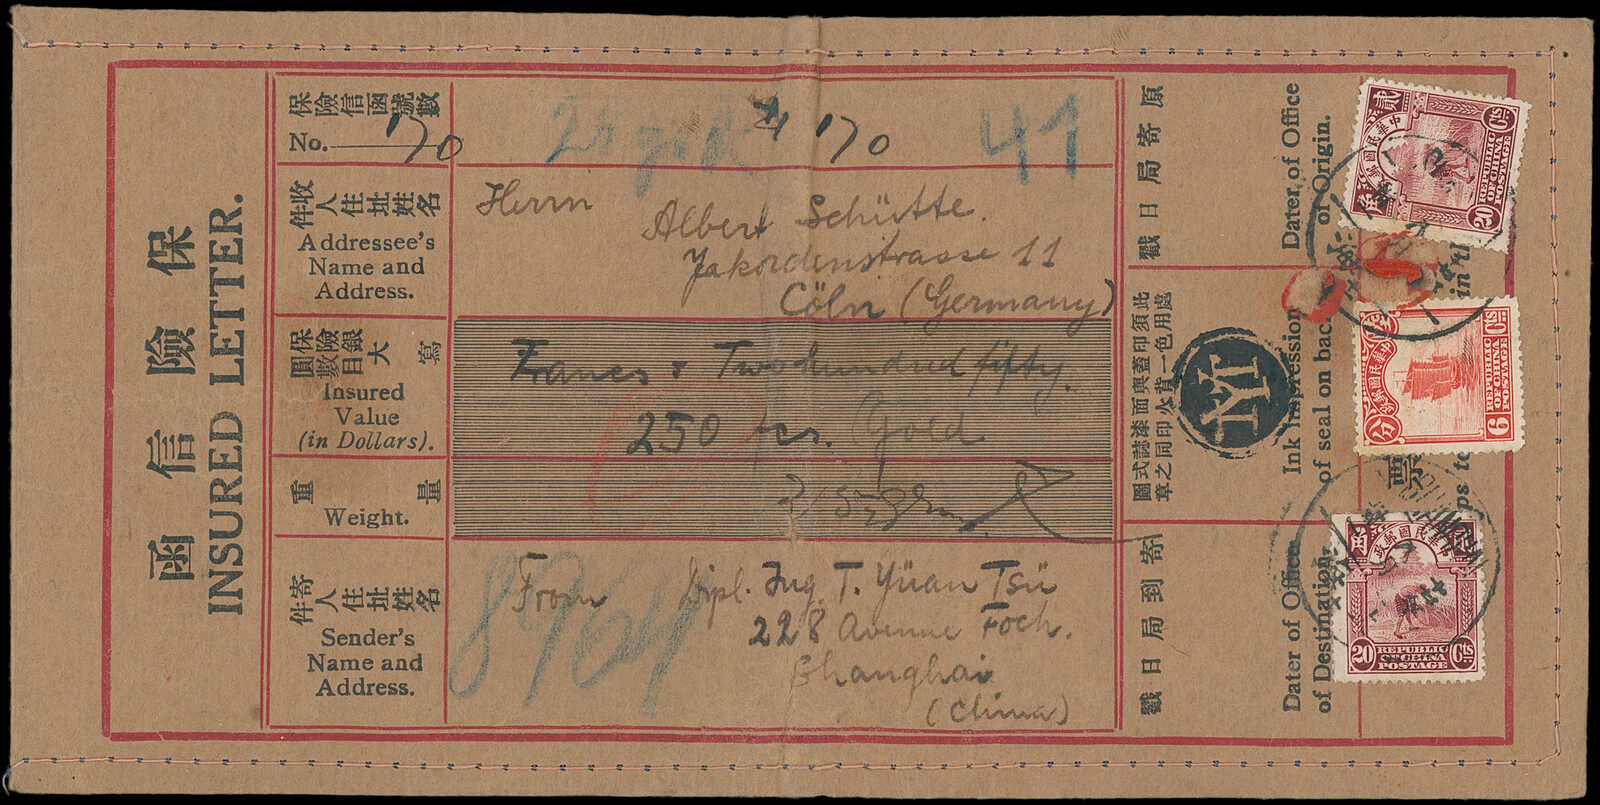 保險信函
INSURED LETTER.
保險信函號數
No. 170
170
41
收件人住址姓名
Addressee's
Name and
Address.
Herrn
Albert Schütte.
Jakordenstrasse 11
Cöln (Germany)
保險銀圓數目大寫
Insured
Value
(in Dollars).
Francs : Two hundred fifty.
250 frs. Gold
重量
Weight.
寄件人住址姓名
Sender's
Name and
Address.
8964
From Dipl. Ing. T. Yüan Tsü
228 Avenue Foch.
Shanghai
(China)
原寄局日戳
Dater of Office
of Origin.
此處須用印色蓋一與背面火漆印誌同式之圖章
Ink Impression
of seal on back.
寄到局日戳
Dater of Office
of Destination.
票
中華民國郵政
20 Cts
REPUBLIC
OF CHINA
POSTAGE
中華民國郵政
6 Cts
REPUBLIC
OF CHINA
POSTAGE
中華民國郵政
20 Cts
REPUBLIC
OF CHINA
POSTAGE